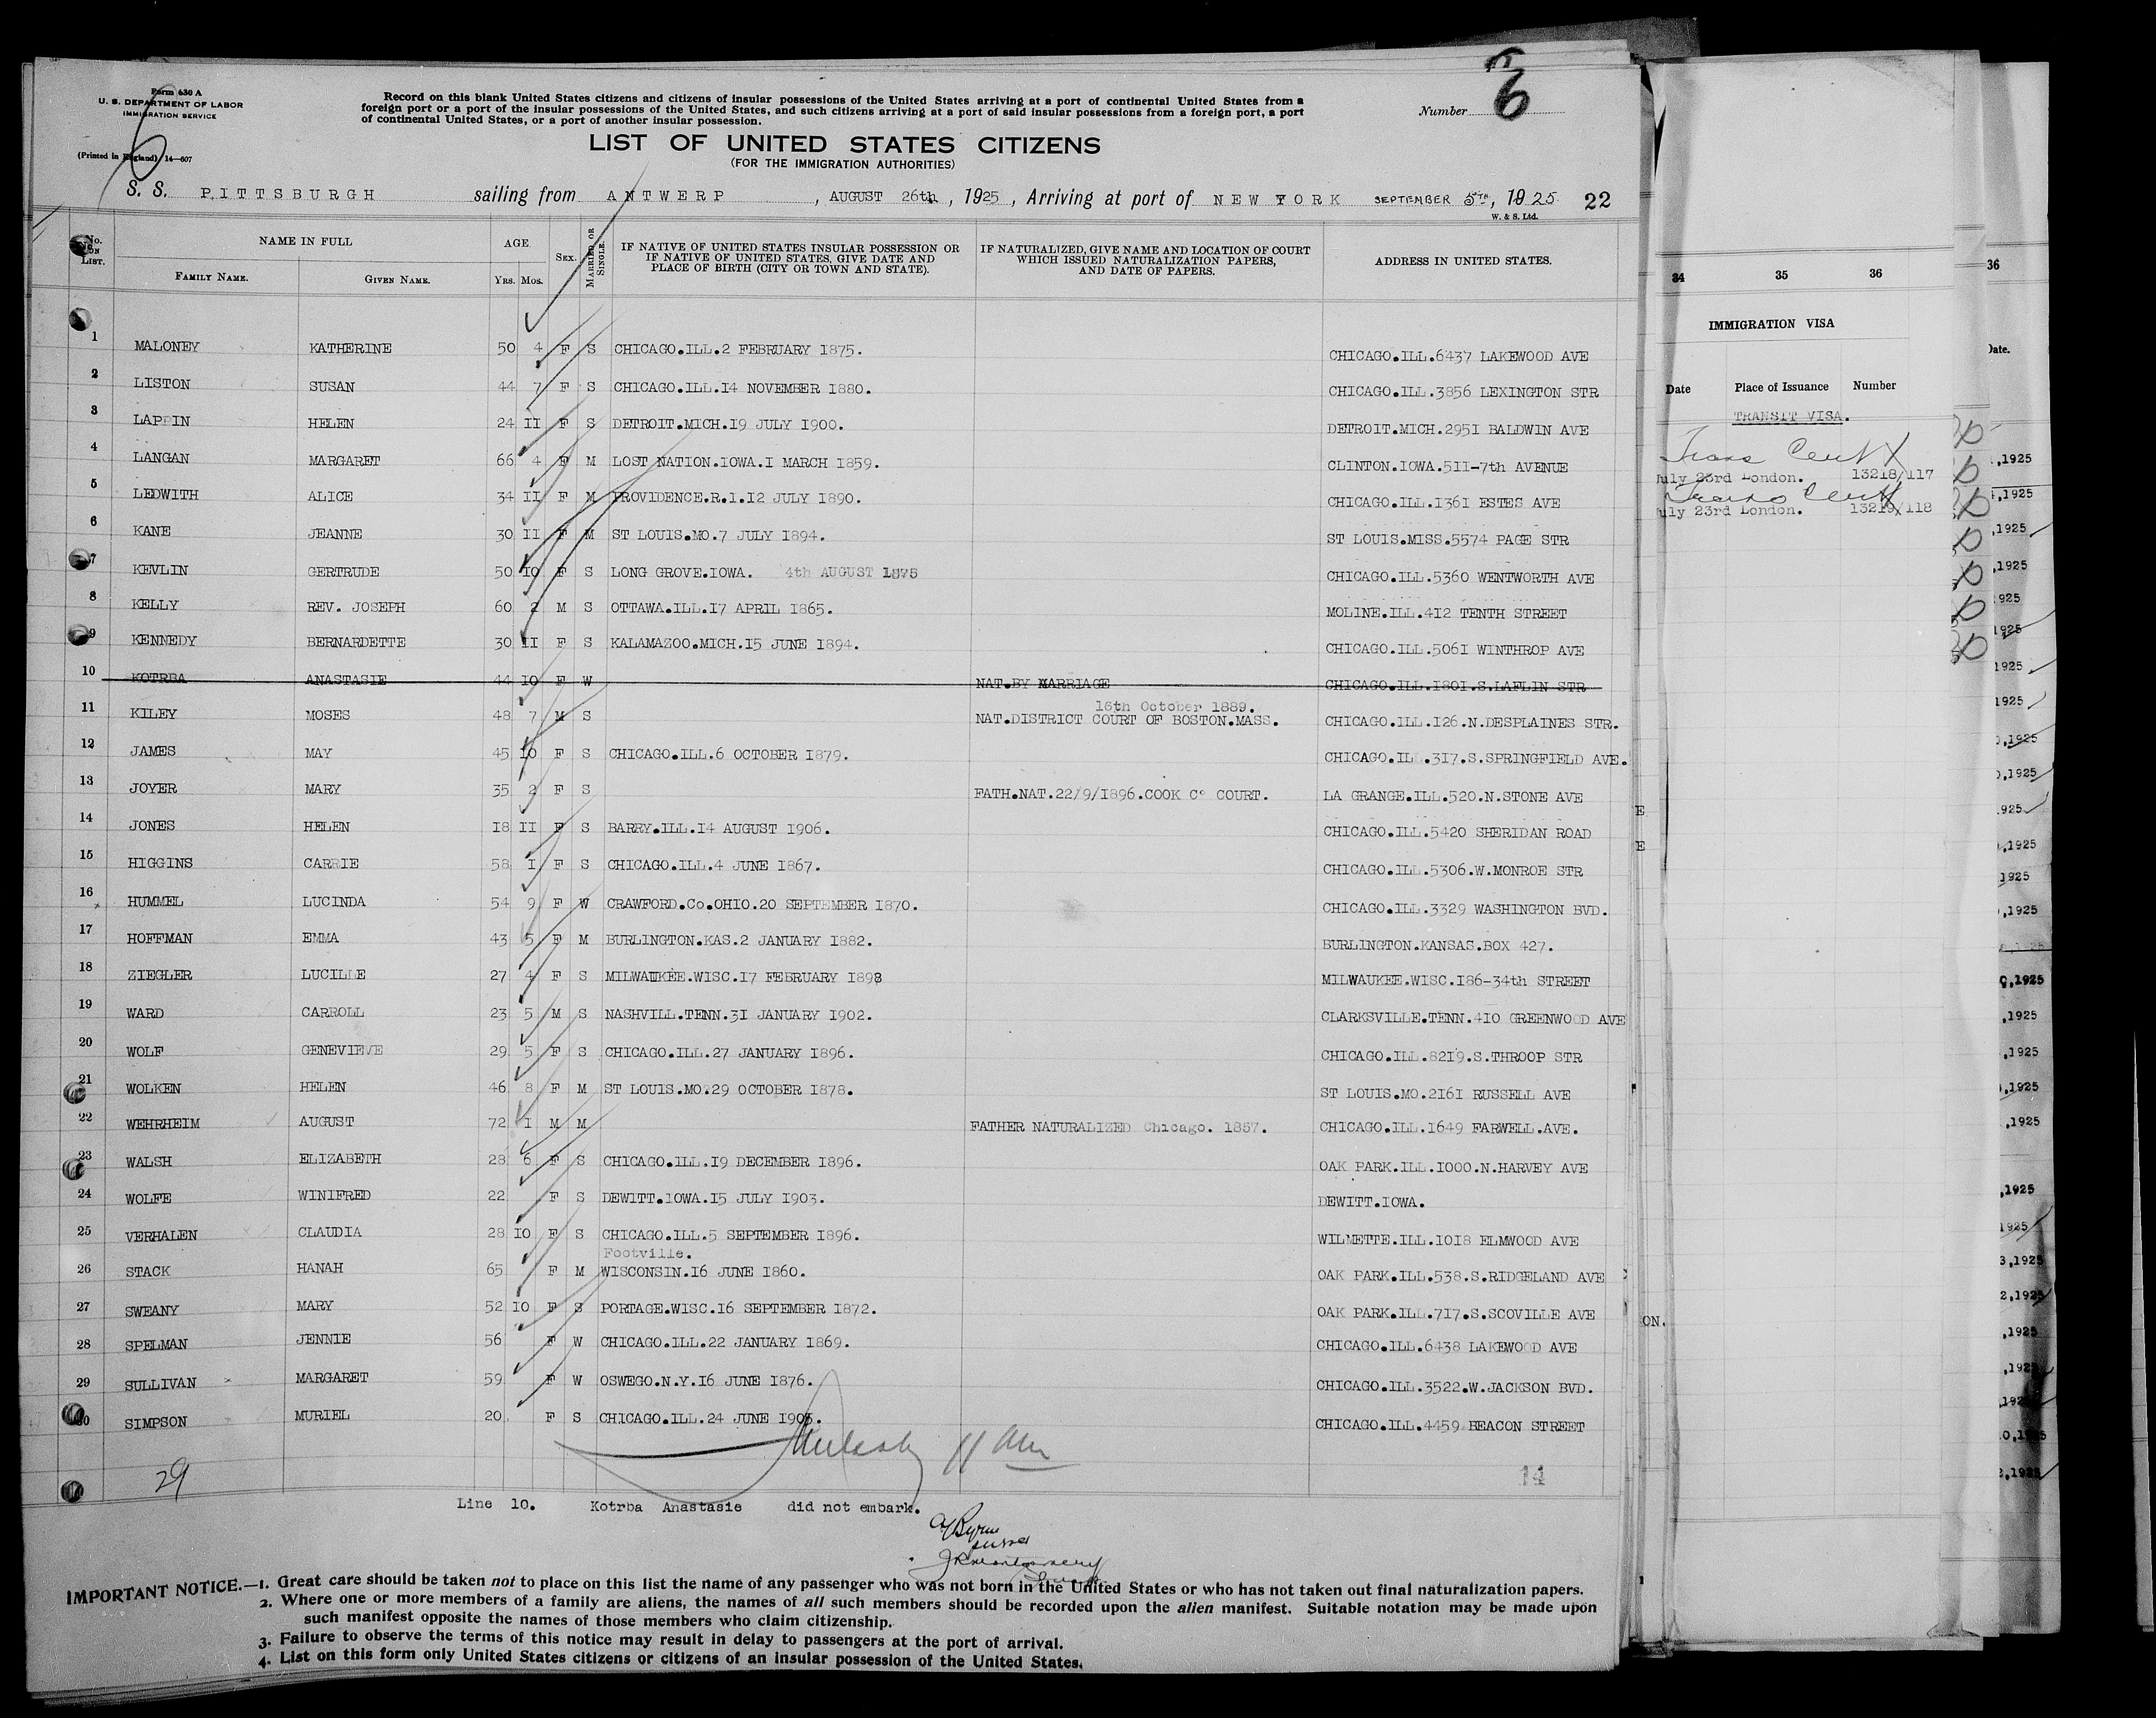 Form 630 A
U. S. DEPARTMENT OF LABOR
IMMIGRATION SERVICE
(Printed in England) 14—607
6
Record on this blank United States citizens and citizens of insular possessions of the United States arriving at a port of continental United States from a
foreign port or a port of the insular possessions of the United States, and such citizens arriving at a port of said insular possessions from a foreign port, a port
of continental United States, or a port of another insular possession.
Number 6
LIST OF UNITED STATES CITIZENS
(FOR THE IMMIGRATION AUTHORITIES)
S. S. PITTSBURGH sailing from ANTWERP , AUGUST 26th , 1925 , Arriving at port of NEW YORK SEPTEMBER 5TH, 1925 22
W. & S. Ltd.
No. ON LIST. NAME IN FULL AGE SEX. MARRIED OR SINGLE. IF NATIVE OF UNITED STATES INSULAR POSSESSION OR IF NATIVE OF UNITED STATES, GIVE DATE AND PLACE OF BIRTH (CITY OR TOWN AND STATE). IF NATURALIZED, GIVE NAME AND LOCATION OF COURT WHICH ISSUED NATURALIZATION PAPERS, AND DATE OF PAPERS. ADDRESS IN UNITED STATES.
FAMILY NAME. GIVEN NAME. YRS. MOS.
1 MALONEY KATHERINE 50 4 F S CHICAGO.ILL.2 FEBRUARY 1875. CHICAGO.ILL.6437 LAKEWOOD AVE
2 LISTON SUSAN 44 7 F S CHICAGO.ILL.14 NOVEMBER 1880. CHICAGO.ILL.3856 LEXINGTON STR
3 LAPPIN HELEN 24 II F S DETROIT.MICH.19 JULY 1900. DETROIT.MICH.2951 BALDWIN AVE
4 LANGAN MARGARET 66 4 F M LOST NATION.IOWA.I MARCH 1859. CLINTON.IOWA.511-7th AVENUE
5 LEDWITH ALICE 34 II F M PROVIDENCE.R.1.12 JULY 1890. CHICAGO.ILL.1361 ESTES AVE
6 KANE JEANNE 30 II F M ST LOUIS.MO.7 JULY 1894. ST LOUIS.MISS.5574 PAGE STR
7 KEVLIN GERTRUDE 50 10 F S LONG GROVE.IOWA. 4th AUGUST 1875 CHICAGO.ILL.5360 WENTWORTH AVE
8 KELLY REV. JOSEPH 60 2 M S OTTAWA.ILL.17 APRIL 1865. MOLINE.ILL.412 TENTH STREET
9 KENNEDY BERNARDETTE 30 II F S KALAMAZOO.MICH.15 JUNE 1894. CHICAGO.ILL.5061 WINTHROP AVE
10 KOTRBA ANASTASIE 44 10 F W NAT.BY MARRIAGE CHICAGO.ILL.1801.S.LAFLIN STR
16th October 1889.
11 KILEY MOSES 48 7 M S NAT.DISTRICT COURT OF BOSTON.MASS. CHICAGO.ILL.126.N.DESPLAINES STR.
12 JAMES MAY 45 10 F S CHICAGO.ILL.6 OCTOBER 1879. CHICAGO.ILL.317.S.SPRINGFIELD AVE.
13 JOYER MARY 35 2 F S FATH.NAT.22/9/1896.COOK Co COURT. LA GRANGE.ILL.520.N.STONE AVE
14 JONES HELEN 18 II F S BARRY.ILL.14 AUGUST 1906. CHICAGO.ILL.5420 SHERIDAN ROAD
15 HIGGINS CARRIE 58 I F S CHICAGO.ILL.4 JUNE 1867. CHICAGO.ILL.5306.W.MONROE STR
16 HUMMEL LUCINDA 54 9 F W CRAWFORD.Co.OHIO.20 SEPTEMBER 1870. CHICAGO.ILL.3329 WASHINGTON BVD.
17 HOFFMAN EMMA 43 5 F M BURLINGTON.KAS.2 JANUARY 1882. BURLINGTON.KANSAS.BOX 427.
18 ZIEGLER LUCILLE 27 4 F S MILWAUKEE.WISC.17 FEBRUARY 1898 MILWAUKEE.WISC.186-34th STREET
19 WARD CARROLL 23 5 M S NASHVILL.TENN.31 JANUARY 1902. CLARKSVILLE.TENN.410 GREENWOOD AVE
20 WOLF GENEVIEVE 29 5 F S CHICAGO.ILL.27 JANUARY 1896. CHICAGO.ILL.8219.S.THROOP STR
21 WOLKEN HELEN 46 8 F M ST LOUIS.MO.29 OCTOBER 1878. ST LOUIS.MO.2161 RUSSELL AVE
22 WEHRHEIM AUGUST 72 I M M FATHER NATURALIZED Chicago. 1857. CHICAGO.ILL.1649 FARWELL.AVE.
23 WALSH ELIZABETH 28 6 F S CHICAGO.ILL.19 DECEMBER 1896. OAK PARK.ILL.1000.N.HARVEY AVE
24 WOLFE WINIFRED 22 F S DEWITT.IOWA.15 JULY 1903. DEWITT.IOWA.
25 VERHALEN CLAUDIA 28 10 F S CHICAGO.ILL.5 SEPTEMBER 1896. WILMETTE.ILL.1018 ELMWOOD AVE
Footville.
26 STACK HANAH 65 F M WISCONSIN.16 JUNE 1860. OAK PARK.ILL.538.S.RIDGELAND AVE
27 SWEANY MARY 52 10 F S PORTAGE.WISC.16 SEPTEMBER 1872. OAK PARK.ILL.717.S.SCOVILLE AVE
28 SPELMAN JENNIE 56 F W CHICAGO.ILL.22 JANUARY 1869. CHICAGO.ILL.6438 LAKEWOOD AVE
29 SULLIVAN MARGARET 59 F W OSWEGO.N.Y.16 JUNE 1876. CHICAGO.ILL.3522.W.JACKSON BVD.
30 SIMPSON MURIEL 20 F S CHICAGO.ILL.24 JUNE 1905. CHICAGO.ILL.4459 BEACON STREET
29
14
Line 10. Kotrba Anastasie did not embark.
IMPORTANT NOTICE.—1. Great care should be taken not to place on this list the name of any passenger who was not born in the United States or who has not taken out final naturalization papers.
2. Where one or more members of a family are aliens, the names of all such members should be recorded upon the alien manifest. Suitable notation may be made upon
such manifest opposite the names of those members who claim citizenship.
3. Failure to observe the terms of this notice may result in delay to passengers at the port of arrival.
4. List on this form only United States citizens or citizens of an insular possession of the United States.
34 35 36
IMMIGRATION VISA
Date Place of Issuance Number
TRANSIT VISA.
uly 23rd London. 13218/117
uly 23rd London. 13219/118
36
Date.